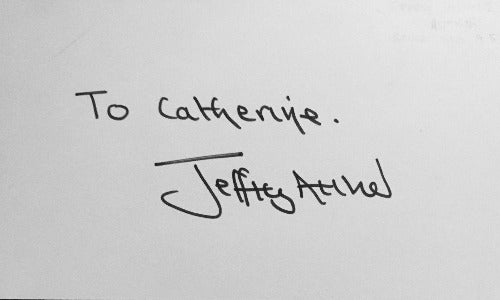 To Catherine.
Jeffrey Archer